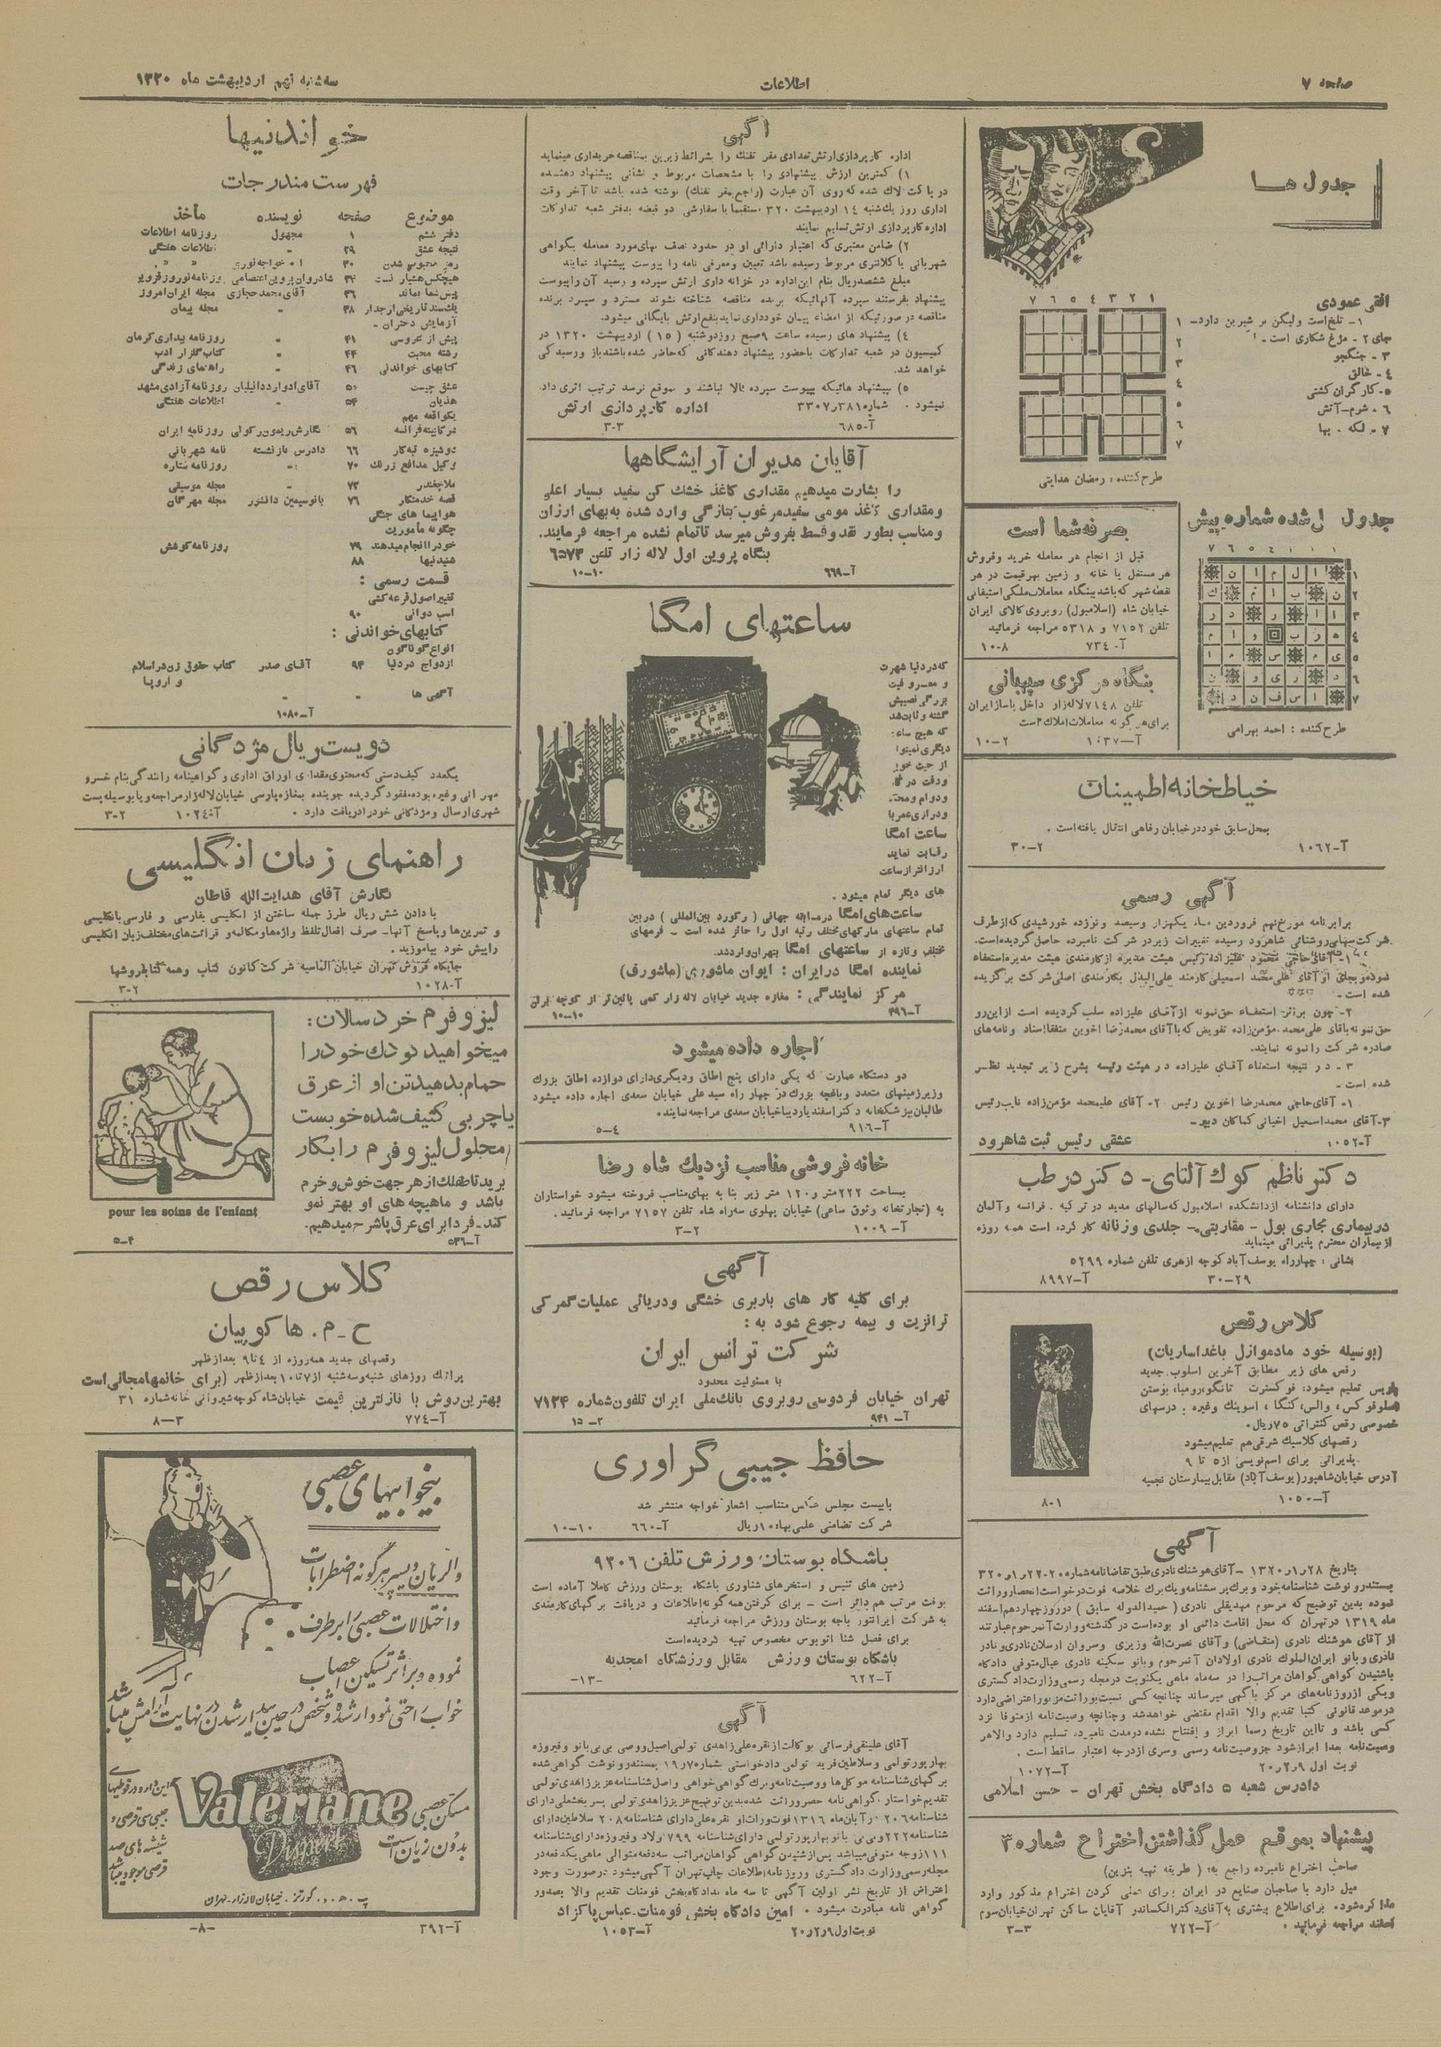 صفحه ۷
اطلاعات
سه‌شنبه نهم اردیبهشت ماه ۱۳۲۰
جدول ها
افقی عمودی
۱- تلخ‌است ولیکن بر شیرین دارد-
جای ۲ - مرغ شکاری است -
۳ - جنگجو
۴ - خالق
۵- کارگران کشتی
۶ - شرم-آتش
۷ - لکه . بها
طرح‌کننده : رمضان هدایتی
جدول حل شده شماره پیش
طرح‌کننده : احمد بهرامی
بصرفه شما است
قبل از انجام هر معامله خرید و فروش
هر مستغل یا خانه و زمین بهر قیمت در هر
نقطه شهر که باشد ببنگاه معاملات ملکی استیفائی
خیابان شاه (اسلامبول) روبروی کالای ایران
تلفن ۷۱۵۲ و ۵۳۱۸ مراجعه فرمائید
آ-۷۳۴ ۸-۱۰
بنگاه مرکزی سپهبانی
تلفن ۷۱۴۸ لاله‌زار داخل پاساژ ایران
برای هر گونه معاملات املاک است
آ-۱۰۳۷ ۲-۱۰
خیاطخانه اطمینان
بمحل سابق خود در خیابان رفاهی انتقال یافته است .
آ-۱۰۶۲ ۲-۳۰
آگهی رسمی
برابر نامه مورخ نهم فروردین ماه یکهزار و سیصد و نوزده خورشیدی که از طرف
شرکت سهامی روشنائی شاهرود رسیده تغییرات زیر در شرکت نامبرده حاصل گردیده است.
۱- آقای حاجی محمود علیزاده رئیس هیئت مدیره از کارمندی هیئت مدیره استعفاء
نموده و بجای او آقای علی‌محمد اسمعیلی کارمند علی‌البدل بکارمندی اصلی شرکت برگزیده
شده است -
۲- چون براثر استعفاء حق نمونه از آقای علیزاده سلب گردیده است از این رو
حق نمونه باقای علی‌محمد مؤمن‌زاده تفویض که با آقای محمدرضا اخوین متفقا اسناد و نامه‌های
صادره شرکت را نمونه نمایند.
۳ - در نتیجه استعفاء آقای علیزاده در هیئت رئیسه بشرح زیر تجدید نظر
شده است -
۱- آقای حاجی محمدرضا اخوین رئیس ۲- آقای علیمحمد مؤمن‌زاده نایب رئیس
۳-آقای محمد اسمعیل اخیانی کماکان دبیر-
آ-۱۰۵۲ عشقی رئیس ثبت شاهرود
دکتر ناظم کوك آلتای- دکتر در طب
دارای دانشنامه از دانشکده اسلامبول که سالهای مدید در ترکیه . فرانسه و آلمان
در بیماری مجاری بول - مقاربتی - جلدی و زنانه کار کرده است همه روزه
از بیماران محترم پذیرائی مینماید
نشانی : چهارراه یوسف آباد کوچه ازهری تلفن شماره ۵۲۹۹
۲۹-۳۰ آ-۸۹۹۷
کلاس رقص
(بوسیله خود مادموازل باغداساریان)
رقص های زیر مطابق آخرین اسلوب جدید
پاریس تعلیم میشود: فوکسترت تانگو، رومبا، بوستن
اسلوفوکس، والس، کنگا، اسوینك وغیره . درسهای
خصوصی رقص کنتراتی ۷۵ ریال.
رقصهای کلاسیك شرقی هم تعلیم میشود
پذیرائی برای اسم نویسی از ۵ تا ۹
آدرس خیابان شاهپور (یوسف‌آباد) مقابل بیمارستان نجمیه
آ-۱۰۵۰ ۱-۸
آگهی
بتاریخ ۲۸ر۱ر۱۳۲۰ -آقای هوشنك نادری طبق تقاضانامه شماره ۲۰-۲۲ر۱ر۳۲۰
بمستند رونوشت شناسنامه خود و برك پرسشنامه و یك برك خلاصه فوت درخواست انحصار وراثت
نموده بدین توضیح که مرحوم مهدیقلی نادری (حمیدالدوله سابق) در روز چهاردهم اسفند
ماه ۱۳۱۹ در تهران که محل اقامت دائمی او بوده است در گذشته و وراث آنمرحوم عبارتند
از آقای هوشنك نادری (متقاضی) وآقای نصرت‌الله وزیری وسروان ارسلان نادری و نادر
نادری و بانو ایران‌الملوك نادری اولادان آنمرحوم وبانو سکینه نادری عیال متوفی دادگاه
باشنیدن گواهی گواهان مراتب را در سه ماه ماهی یکنوبت در مجله رسمی وزارت دادگستری
ویکی از روزنامه‌های مرکز باگهی میرساند چنانچه کسی نسبت بوراثت مزبور اعتراضی دارد
در موعد قانونی کتبا تقدیم والا اقدام مقتضی خواهد شد وچنانچه وصیت‌نامه از متوفا نزد
کسی باشد و تااین تاریخ رسما ابراز و افتتاح نشده درمدت نامبرده تسلیم دارد والاهر
وصیت‌نامه بعدا ابراز شود جزوصیت نامه رسمی وسری از درجه اعتبار ساقط است .
نوبت اول ۹ر۲ر۲۰ آ-۱۰۷۲
دادرس شعبه ۵ دادگاه بخش تهران - حسن اسلامی
پیشنهاد بموقع عمل گذاشتن اختراع شماره ۳
صاحب اختراع نامبرده راجع به: (طریقه تهیه بنزین)
میل دارد با صاحبان صنایع در ایران برای عملی کردن اختراع مذکور وارد
مذاکره شود . برای اطلاع بیشتری به آقای دکتر الکساندر آقایان ساکن تهران خیابان سوم
اسفند مراجعه فرمائید . آ-۷۲۲ ۳-۳
آگهی
اداره کارپردازی ارتش تعدادی مغز تفنك را بشرائط زیرین بمناقصه خریداری مینماید
۱) کمترین ارزش پیشنهادی را با مشخصات مربوط و نشانی پیشنهاد دهنده
در پاکت لاك شده که روی آن عبارت (راجع بمغز تفنك) نوشته شده باشد تا آخر وقت
اداری روز یك‌شنبه ۱۴ اردیبهشت ۳۲۰ مستقیما با سفارشی دو قبضه بدفتر شعبه تدارکات
اداره کارپردازی ارتش تسلیم نمایند
۲) ضامن معتبری که اعتبار دارائی او در حدود نصف بهای مورد معامله بگواهی
شهربانی یا کلانتری مربوط رسیده باشد تعیین ومعرفی نامه را پیوست پیشنهاد نمایند
مبلغ ششصد ریال بنام این اداره در خزانه داری ارتش سپرده و رسید آن را پیوست
پیشنهاد بفرستند سپرده آنهائیکه برنده مناقصه شناخته نشوند مسترد و سپرده برنده
مناقصه در صورتیکه از امضاء پیمان خودداری نماید بنفع ارتش بایگانی میشود.
۴) پیشنهاد های رسیده ساعت ۹ صبح روز دوشنبه (۱۵) اردیبهشت ۱۳۲۰ در
کمیسیون در شعبه تدارکات باحضور پیشنهاد دهندگانی که حاضر شده باشند باز ورسیدگی
خواهد شد.
۵) پیشنهاد هائیکه بپیوست سپرده بالا نباشند و بموقع نرسد ترتیب اثری داده
نمیشود . شماره ۳۸۱ر۳۳۰۷ اداره کارپردازی ارتش
آ-۶۸۵ ۳-۳
آقایان مدیران آرایشگاهها
را بشارت میدهیم مقداری کاغذ خشك کن سفید بسیار اعلی
ومقداری کاغذ مومی سفید مرغوب بتازگی وارد شده به بهای ارزان
ومناسب بطور نقد وقسط بفروش میرسد تا تمام نشده مراجعه فرمایند.
بنگاه پروین اول لاله زار تلفن ۶۵۷۳
آ-۶۶۹ ۱۰-۱۰
ساعتهای امگا
که در دنیا شهرت
و معروفیت
بزرگی نصیبش
گشته و ثابت شد
که هیچ ساعت
دیگری نمیتواند
از حیث خوبی
ودقت در کار
ودوام ومحکمی
ودرازی عمر با
ساعت امگا
رقابت نماید
ارزانتر از ساعت
های دیگر تمام میشود .
ساعت‌های امگا در مسابقه جهانی (رکورد بین‌المللی) در بین
تمام ساعتهای مارکهای مختلف رتبه اول را حائز شده است - فرمهای
مختلف وتازه از ساعتهای امگا بتهران وارد شد.
نماینده امگا در ایران : ایوان ماشوری (ماشورف)
مرکز نمایندگی : مغازه جدید خیابان لاله زار کمی پائین‌تر از کوچه برلن
آ-۴۹۶ ۱۰-۱۰
اجاره داده میشود
دو دستگاه عمارت که یکی دارای پنج اطاق ودیگری دارای دوازده اطاق بزرك
وزیر زمینهای متعدد وباغچه بزرك در چهار راه سید علی خیابان سعدی اجاره داده میشود
طالبان بپزشکخانه دکتر اسفندیار دیبا خیابان سعدی مراجعه نمایند.
آ-۹۱۶ ۴-۵
خانه فروشی مناسب نزدیك شاه رضا
بمساحت ۲۲۲ متر و ۱۲۰ متر زیر بنا به بهای مناسب فروخته میشود خواستاران
به (تجارتخانه وثوق ساعی) خیابان پهلوی سه راه شاه تلفن ۷۱۵۷ مراجعه فرمائید.
آ-۱۰۰۹ ۲-۳
آگهی
برای کلیه کار های باربری خشگی ودریائی عملیات گمرکی
ترانزیت و بیمه رجوع شود به :
شرکت ترانس ایران
با مسئولیت محدود
تهران خیابان فردوسی روبروی بانك ملی ایران تلفون شماره ۷۱۳۴
آ- ۹۴۱ ۲- ۱۵
حافظ جیبی گراوری
بابیست مجلس عکس متناسب اشعار خواجه منتشر شد
شرکت تضامنی علمی بهاء ۱۰ ریال آ-۶۶۰ ۱۰-۱۰
باشگاه بوستان ورزش تلفن ۹۳۰۶
زمین های تنیس و استخرهای شناوری باشگاه بوستان ورزش کاملا آماده است
بوفت مرتب هم دائر است - برای گرفتن همه گونه اطلاعات و دریافت برگهای کارمندی
به شرکت ایرانتور باجه بوستان ورزش مراجعه فرمائید
برای فصل شنا اتوبوس مخصوص تهیه گردیده است
باشگاه بوستان ورزش مقابل ورزشگاه امجدیه
آ-۶۲۲ -۱۳-
آگهی
آقای علینقی فرسائی بوکالت از نقره علی‌زاهدی تولمی اصیل ووصی بی‌بی بانو وفیروزه
بهارپور تولمی وسلاطین فرید تولمی دادخواستی شماره ۷ر۱۹ بمستند رونوشت گواهی شده
برگهای شناسنامه موکل‌ها ووصیت‌نامه وبرك گواهی خواهی واصل شناسنامه عزیز زاهدی تولمی
تقدیم خواستار گواهی نامه حصر وراثت شده بدین توضیح عزیز زاهدی تولمی پسر بخشعلی دارای
شناسنامه ۲۰۶ در آبان ماه ۱۳۱۶ فوت وراث او نقره علی دارای شناسنامه ۲۰۸ سلاطین دارای
شناسنامه ۲۲۲ و بی‌بی بانو بهارپور تولمی دارای شناسنامه ۷۹۹ اولاد وفیروزه دارای شناسنامه
۱۱۱ زوجه متوفی میباشد پس از شنیدن گواهی گواهان مراتب سه دفعه متوالی ماهی یکدفعه در
مجله رسمی وزارت دادگستری و روزنامه اطلاعات چاپ تهران آگهی میشود در صورت وجود
اعتراض از تاریخ نشر اولین آگهی تا سه ماه بدادگاه بخش فومنات تقدیم والا بصدور
گواهی نامه مبادرت میشود . امین دادگاه بخش فومنات- عباس پاکزاد
نوبت اول ۹ر۲ر۲۰ آ-۱۰۵۳
خواندنیها
فهرست مندرجات
موضوع صفحه نویسنده مأخذ
دفتر ششم ۱ مجهول روزنامه اطلاعات
نتیجه عشق ۲۹ " اطلاعات هفتگی
رمز محبوس شدن ۳۰ ا . خواجه نوری " "
هیچکس هشیار نیست ۳۴ شادروان پروین اعتصامی روزنامه نوروز قزوین
پیش شما بماند ۳۶ آقای محمد حجازی مجله ایران امروز
یك سند تاریخی از جدار ۳۸ - مجله پیمان
آزمایش دختران -
پیش از عروسی ۴۱ - روزنامه بیداری کرمان
رشته محبت ۴۴ - کتاب گلزار ادب
کتابهای خواندنی ۴۶ - راهنمای زندگی
عشق چیست ۵۰ آقای ادوارد دانیلیان روزنامه آزادی مشهد
هذیان ۵۴ - اطلاعات هفتگی
یکواقعه مهم
در کابینه فرانسه ۵۶ نگارش ریمون رکولی روزنامه ایران
دوشیزه تبه‌کار ۶۶ دادرس بازنشسته نامه شهربانی
وکیل مدافع زرنك ۷۰ - روزنامه ستاره
ملاچغندر ۷۳ - مجله موسیقی
قصه خدمتکار ۷۶ بانو سیمین دانشور مجله مهرگان
هواپیما های جنگی
چگونه مأموریت
خود را انجام میدهند ۷۹ روزنامه کوشش
شنیدنیها ۸۸
قسمت رسمی :
تغییر اصول قرعه کشی
اسب دوانی ۹۰
کتابهای خواندنی :
انواع گوناگون
ازدواج در دنیا ۹۴ آقای صدر کتاب حقوق زن در اسلام
و اروپا
آگهی ها - -
آ-۱۰۸۰
دویست ریال مژدگانی
یکعدد کیف دستی که محتوی مقداری اوراق اداری و گواهینامه رانندگی بنام خسرو
مهرانی وغیره بوده مفقود گردیده جوینده بمغازه پارسی خیابان لاله زار مراجعه و یا بوسیله پست
شهری ارسال و مژدگانی خود را دریافت دارد . آ-۱۰۲۴ ۲-۳
راهنمای زبان انگلیسی
نگارش آقای هدایت‌الله قاطان
با دادن شش ریال طرز جمله ساختن از انگلیسی بفارسی و فارسی بانگلیسی
و تمرین‌ها وپاسخ آنها- صرف افعال تلفظ واژه‌ها ومکالمه و قرائت‌های مختلف زبان انگلیسی
را پیش خود بیاموزید .
جایگاه فروش تهران خیابان الماسیه شرکت کانون کتاب وهمه کتابفروشها
آ-۱۰۲۸ ۲-۳
لیزوفرم خردسالان :
میخواهید کودك خود را
حمام بدهید تن او از عرق
یا چربی کثیف شده خوبست
محلول لیزوفرم را بکار
برید تا طفلك از هر جهت خوش و خرم
باشد و ماهیچه های او بهتر نمو
کند- فردا برای عرق پا شرح میدهیم.
pour les soins de l'enfant
آ-۵۳۶ ۴-۵
کلاس رقص
ح - م . هاکوپیان
رقصهای جدید همه روزه از ۴ تا ۹ بعدازظهر
پراتیك روزهای شنبه وسه‌شنبه از ۷ تا ۱۰ بعدازظهر (برای خانمها مجانی است
بهترین روش با نازلترین قیمت خیابان شاه کوچه شیروانی خانه شماره ۳۱
آ-۷۷۴ ۳-۸
بیخوابیهای عصبی
والریان دیسپر هر گونه اضطرابات
و اختلالات عصبی را برطرف
نموده و براثر تسکین اعصاب
خواب راحتی نمودار شده و شخص در حین بیدار شدن در نهایت آرامش میباشد
این دارو در قوطیهای
جیبی سی قرصی و
شیشه های صد
قرصی موجود میباشد
Valeriane
Dispert
مسکن عصبی
بدون زیان است
پ . ه . د . گورتز . خیابان لاله‌زار . تهران
آ-۳۹۲ -۸-